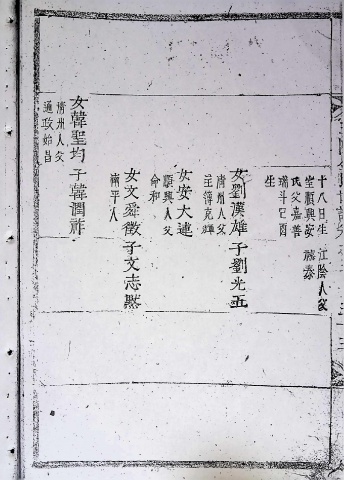 十八日生 江陰人父
室順興安
氏父嘉善
瑞斗己酉
生
女劉漢雄子劉光五
人父
主簿克輝
女安大連
順興人父
命和
女文舜徵子文志默
南平人
女韓聖均子韓潤祚
淸州人父
通政始昌